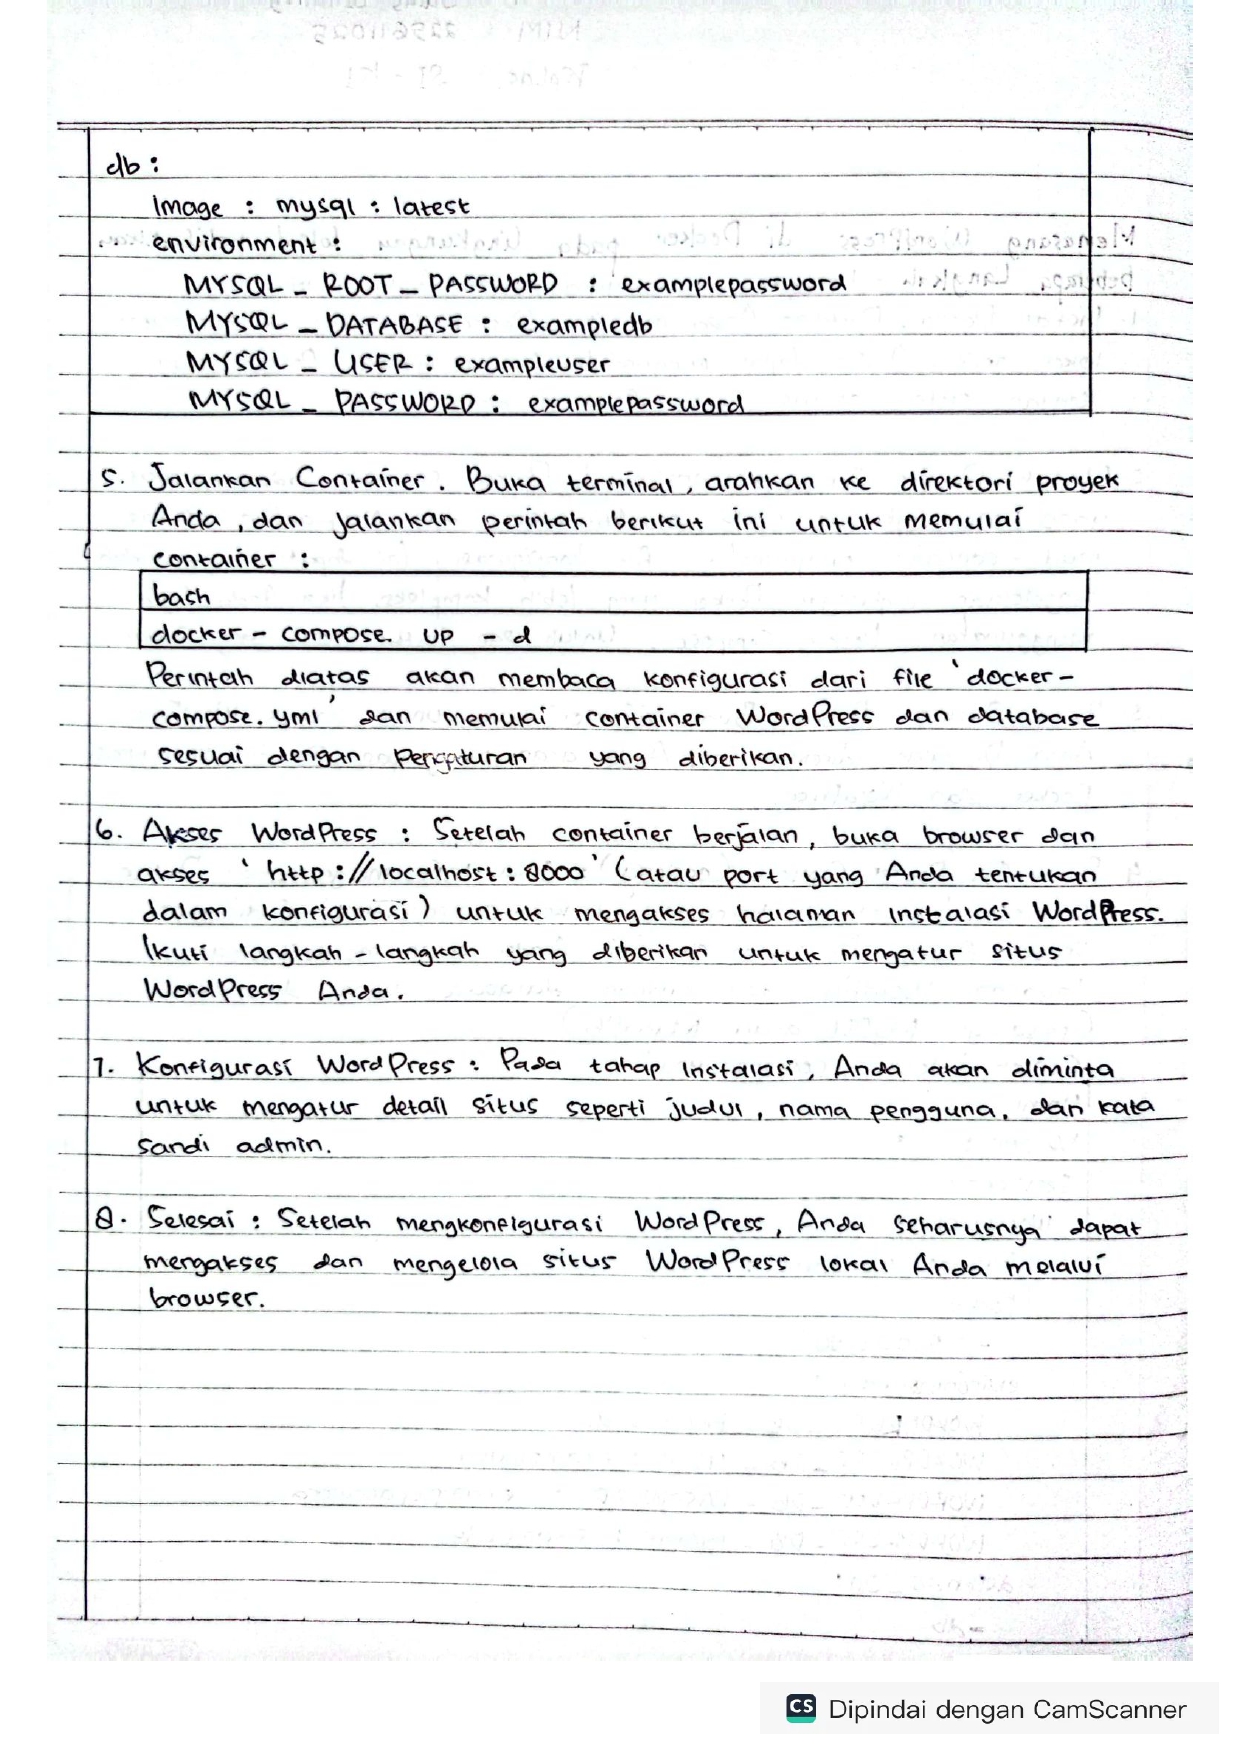 db :
Image : mysql : latest
environment :
MYSQL _ ROOT _ PASSWORD : examplepassword
MYSQL _ DATABASE : exampledb
MYSQL _ USER : exampleuser
MYSQL _ PASSWORD : examplepassword
5. Jalankan Container. Buka terminal, arahkan ke direktori proyek
Anda, dan jalankan perintah berikut ini untuk memulai
container :
bash
docker - compose up - d
Perintah diatas akan membaca konfigurasi dari file 'docker-
compose.yml' dan memulai container WordPress dan database
sesuai dengan Pengaturan yang diberikan.
6. Akses WordPress : Setelah container berjalan, buka browser dan
akses 'http://localhost:8000' (atau port yang Anda tentukan
dalam konfigurasi) untuk mengakses halaman instalasi WordPress.
Ikuti langkah - langkah yang diberikan untuk mengatur situs
WordPress Anda.
7. Konfigurasi WordPress : Pada tahap instalasi, Anda akan diminta
untuk mengatur detail situs seperti judul, nama pengguna, dan kata
sandi admin.
8. Selesai : Setelah mengkonfigurasi WordPress, Anda seharusnya dapat
mengakses dan mengelola situs WordPress lokal Anda melalui
browser.
CS Dipindai dengan CamScanner